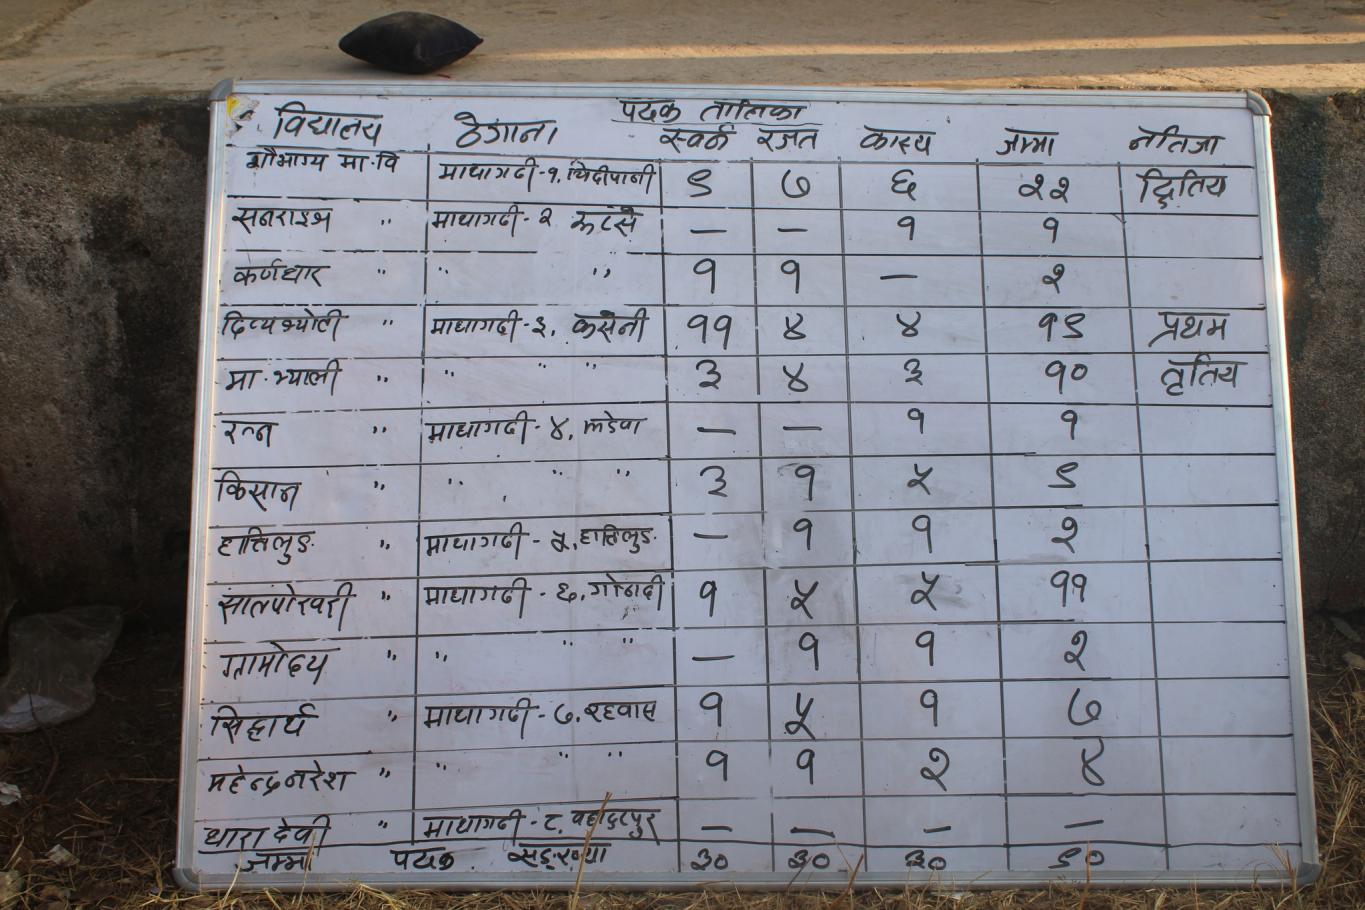 पदक तालिका
विद्यालय ठेगाना स्वर्ण रजत कास्य जम्मा नतिजा
शौभाग्य मा.वि माथागढी-१, चिदीपानी ९ ७ ६ २२ द्वितिय
सनराइज " माथागढी-२ झडेंसे — — १ १
कर्णधार " " " १ १ — २
दिव्यज्योती " माथागढी-३, कसेनी ११ ४ ४ १९ प्रथम
मा.भ्याली " " " " ३ ४ ३ १० तृतिय
रत्न " माथागढी-४, — — १ १
किसान " " , " " ३ १ ५ ९
हात्तिलुङ " माथागढी-५, हात्तिलुङ — १ १ २
सातपोखरी " माथागढी-६, गोठादी १ ५ ५ ११
ग्रामोदय " " " " — १ १ २
सिद्धार्थ " माथागढी-७, रहवास १ ५ १ ७
महेन्द्र नरेश " " " " १ १ २ ४
धारा देवी " माथागढी-८, वहादुरपुर — — — —
जम्मा पदक सङ्ख्या ३० ३० ३० ९०